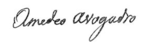 Amedeo Avogadro